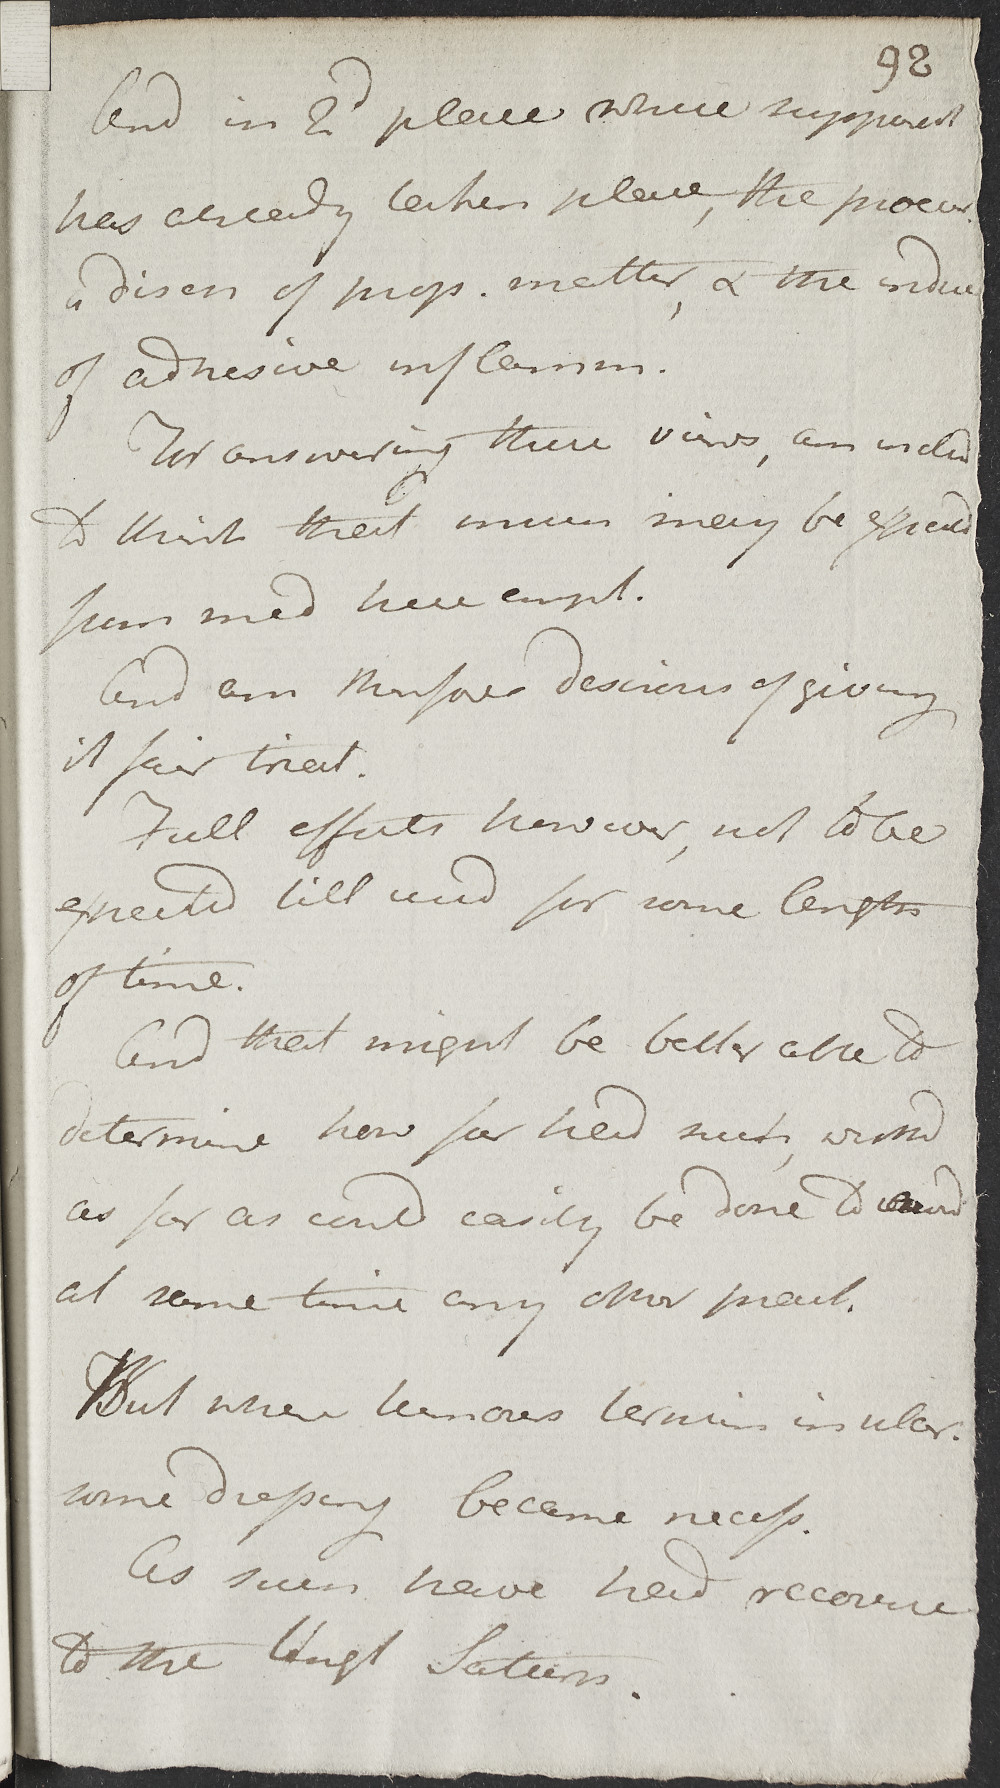 92
And in 2d place where suppurat
has already taken place, the procur.
a discn of prop. matter, & the induc
of adhesive inflamm.
For answering these views, am inclin
to think that much may be expected
from med here empl.
And am therefore desirous of giving
it fair treat.
Full effects however, not to be
expected till used for some length
of time.
And that might be better able to
determine how far had such, wished
as far as could easily be done to avoid
at same time any other pract.
But when tumours termin in ulcer.
some dressing became necess.
As such have had recourse
to the Ungt Saturn.